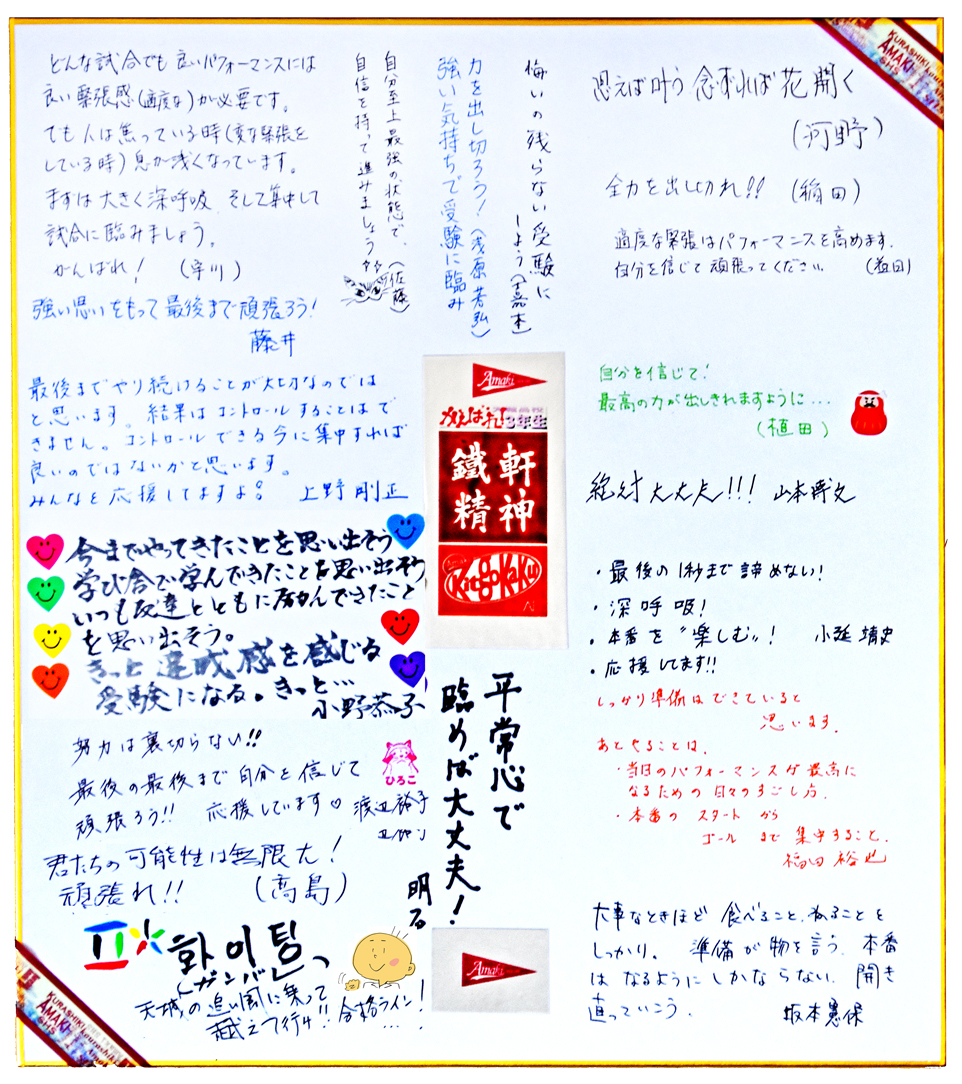 どんな試合でも良いパフォーマンスには
良い緊張感(適度な)が必要です。
でも人は焦っている時(変な緊張を
している時)息が浅くなっています。
まずは大きく深呼吸、そして集中して
試合に臨みましょう。
がんばれ！
強い思いをもって最後まで頑張ろう！
藤井
自分至上最強の状態で、
自信を持って進みましょう
(佐藤)
力を出し切ろう！
強い気持ちで受験に臨み
(浅原芳弘)
悔いの残らない受験に
しよう(嘉本)
思えば叶う 念ずれば花開く
(河野)
全力を出し切れ!! (稲田)
適度な緊張はパフォーマンスを高めます。
自分を信じて頑張ってください (益田)
最後までやり続けることが大切なのでは
と思います。結果はコントロールすることはで
きません。コントロールできる今に集中すれば
良いのではないかと思います。
みんなを応援してますよ。 上野剛正
自分を信じて！
最高の力が出しきれますように...
(植田)
Amaki
がんばれ！
3年生
鐵軒
精神
KitgoKaku
絶対大丈夫!!!
今までやってきたことを思い出そう
学び舎で学んできたことを思い出そう
いつも友達とともに励んできたこと
を思い出そう。
きっと達成感を感じる
受験になる。きっと...
小野恭子
・最後の1秒まで諦めない！
・深呼吸！
・本番を"楽しむ"！
・応援してます!!
しっかり準備はできていると
思います。
あとやることは、
・当日のパフォーマンスが最高に
なるための日々のすごし方。
・本番のスタートから
ゴールまで集中すること。
福田裕也
努力は裏切らない!!
最後の最後まで自分を信じて
頑張ろう!! 応援しています♡ 渡辺裕子
ひろこ
君たちの可能性は無限大！
頑張れ!! (高島)
平常心で
臨めば大丈夫！
明る
화이팅
(ガンバレ)
天城の追い風に乗って
越えて行け!! 合格ライン！
...
Amaki
大事なときほど 食べること、ねることを
しっかり。 準備が物を言う。本番
は なるようにしかならない。開き
直っていこう。 坂本憲保
KURASHIKI
AMAKI
SHS
KURASHIKI
AMAKI
SHS